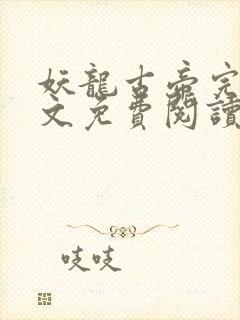 妖龍古帝完
文免費閱讀
吱吱